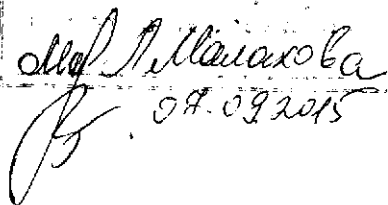 Малахова
07.09.2015